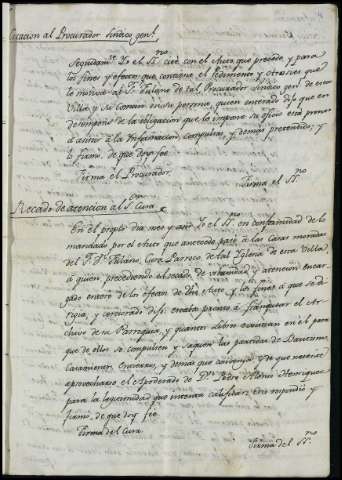 Citacion al Procurador Síndico genl.
Seguidamte. Yo el Sno. cité con el Auto que precede, y para
los fines y efectos que contiene el Pedimento y otrosies que
lo motiva al Sr. Fulano de tal, Procurador Síndico genl. de esta
Villa, y su Comun en su persona, quien enterado dijo que en
desempeño de la obligacion que le impone su oficio está pronto
á asistir á la Informacion, compulsas, y demás pretendido; y
lo firmó, de que doy fee.
Firma el Procurador.
Firma el Sno.
Recado de atencion al Sr. Cura
En el propio dia mes y año Yo el Sno. en conformidad de lo
mandado por el Auto que antecede pasé á las Casas moradas
del Sr. Dn. Fulano, Cura Parroco de tal Iglesia de esta Villa
á quien, precediendo el recado de urbanidad y atencion
gado entero de los efectos de dho Auto y los fines á que se di-
rigia, y enterado dijo: estaba pronto á franquear el Ar-
chivo de la Parroquia, y quantos Libros existian en él para
que de ellos se compulsen y saquen las partidas de Bautismo,
Casamientos, Entierros, y demás que condujesen y de que necesite
aprovecharse el Apoderado de Dn. Pedro Alonso Henriquez
para la legitimidad que intenta calificar: Esto respondió y
firmó, de que doy fee
Firma del Cura.
Firma del Sno.